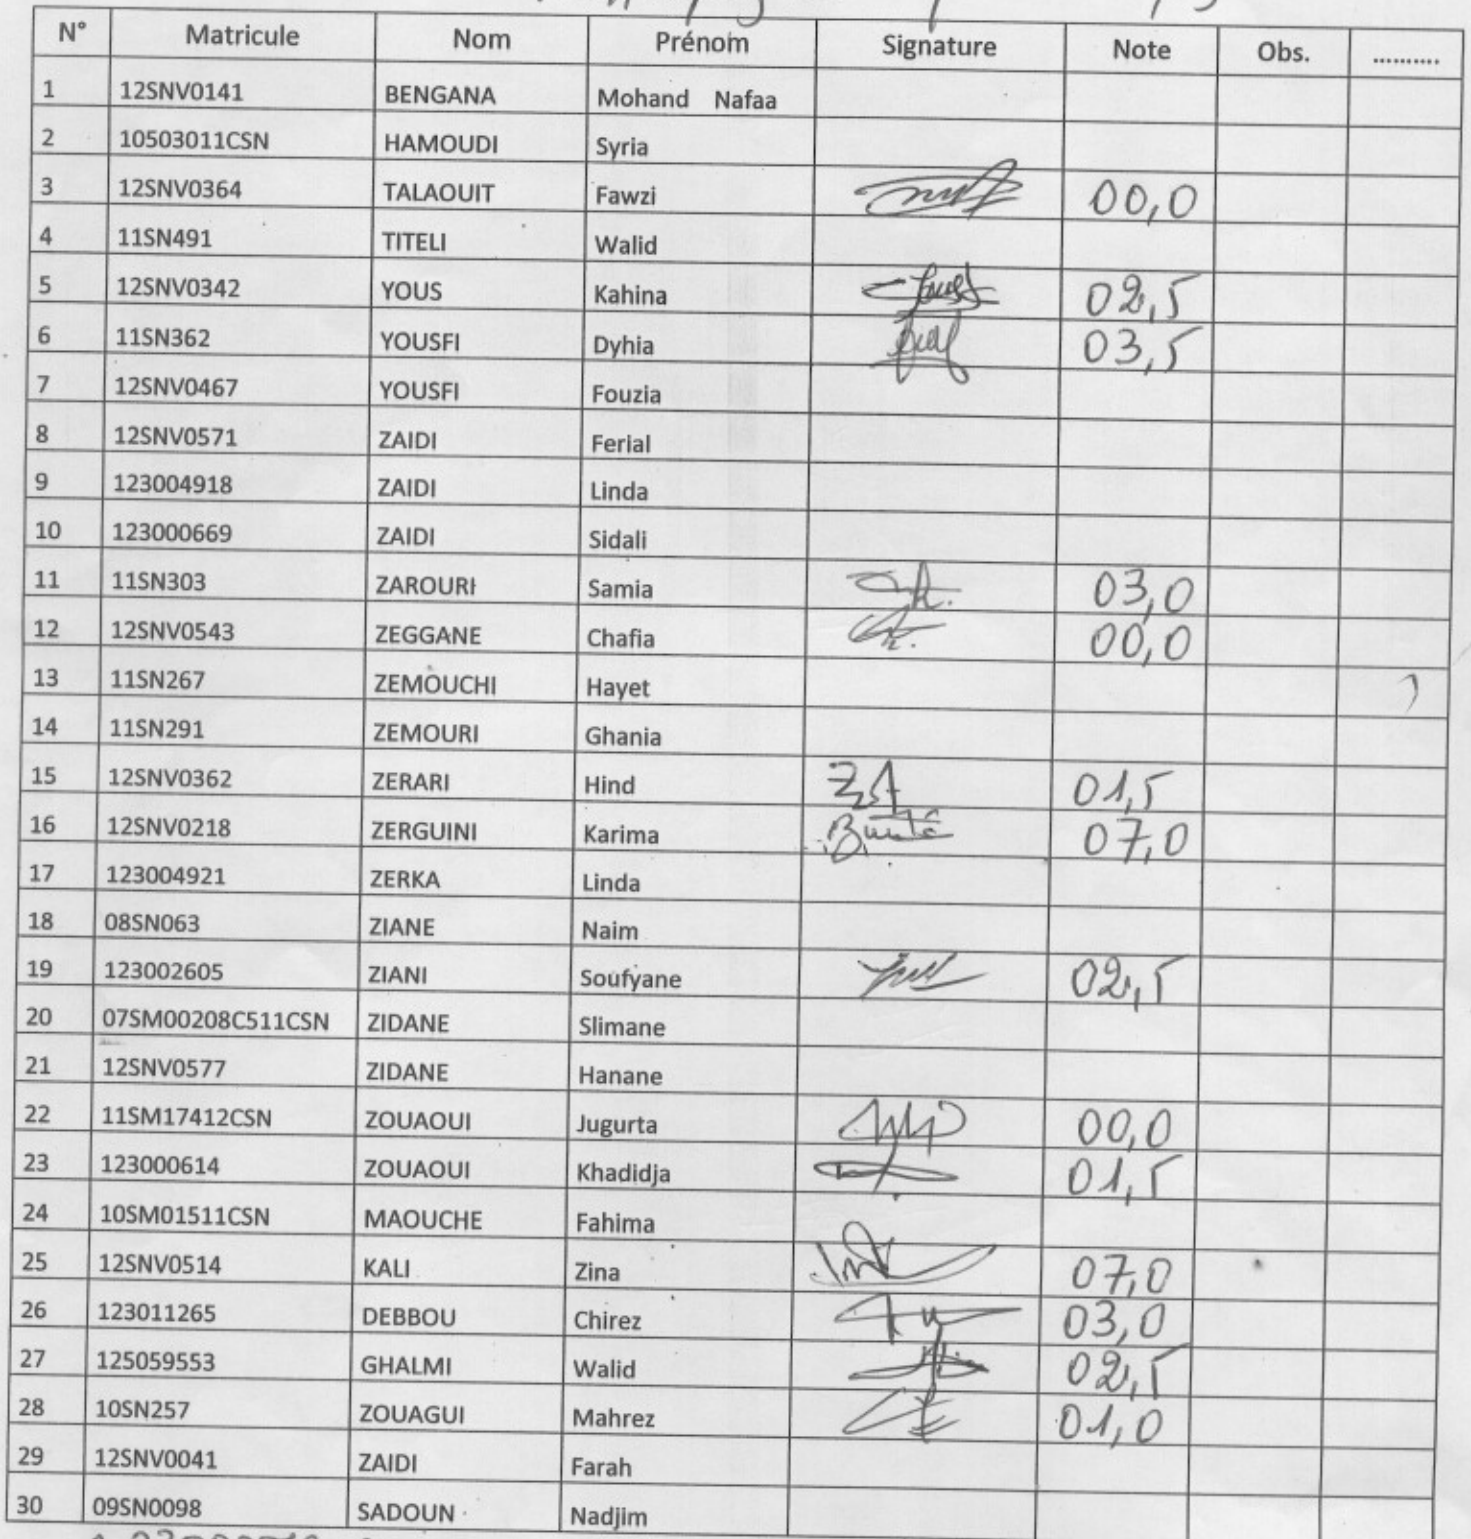 N° Matricule Nom Prénom Signature Note Obs. ..........
1 12SNV0141 BENGANA Mohand Nafaa
2 10503011CSN HAMOUDI Syria
3 12SNV0364 TALAOUIT Fawzi 00,0
4 11SN491 TITELI Walid
5 12SNV0342 YOUS Kahina 02,5
6 11SN362 YOUSFI Dyhia 03,5
7 12SNV0467 YOUSFI Fouzia
8 12SNV0571 ZAIDI Ferial
9 123004918 ZAIDI Linda
10 123000669 ZAIDI Sidali
11 11SN303 ZAROURI Samia 03,0
12 12SNV0543 ZEGGANE Chafia 00,0
13 11SN267 ZEMOUCHI Hayet
14 11SN291 ZEMOURI Ghania
15 12SNV0362 ZERARI Hind 01,5
16 12SNV0218 ZERGUINI Karima 07,0
17 123004921 ZERKA Linda
18 08SN063 ZIANE Naim
19 123002605 ZIANI Soufyane 02,5
20 07SM00208C511CSN ZIDANE Slimane
21 12SNV0577 ZIDANE Hanane
22 11SM17412CSN ZOUAOUI Jugurta 00,0
23 123000614 ZOUAOUI Khadidja 01,5
24 10SM01511CSN MAOUCHE Fahima
25 12SNV0514 KALI Zina 07,0
26 123011265 DEBBOU Chirez 03,0
27 125059553 GHALMI Walid 02,5
28 10SN257 ZOUAGUI Mahrez 01,0
29 12SNV0041 ZAIDI Farah
30 09SN0098 SADOUN Nadjim